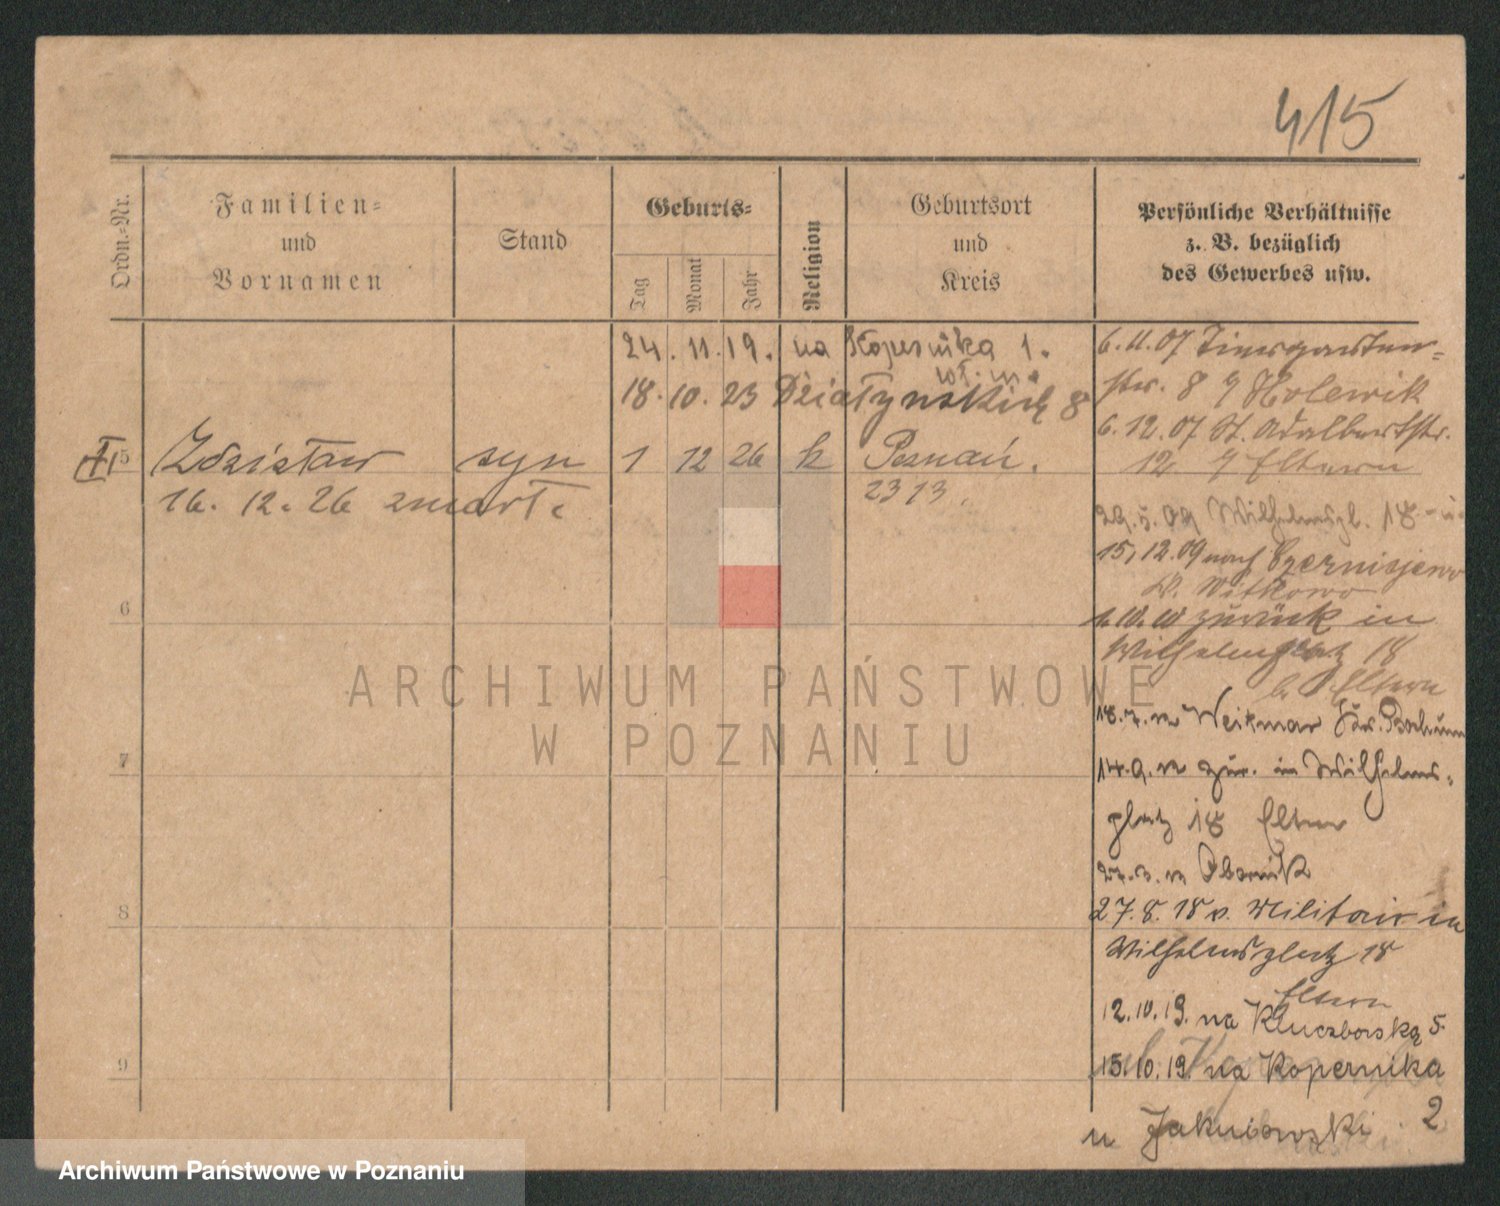 415
Ordn.-Nr.
Familien-
und
Vornamen
Stand
Geburts-
Tag
Monat
Jahr
Religion
Geburtsort
und
Kreis
Persönliche Verhältnisse
z. B. bezüglich
des Gewerbes usw.
24. 11. 19. na Kopernika 1.
18. 10. 23 Działyńskich 8
5 Zdzisław syn 1 12 26 k Poznań.
16. 12. 26 zmarł.
2313.
6
7
8
9
6.11.07 Tiergarten-
str. 8
6.12.07 St. Adalbertstr.
12 Eltern
29.5.09 Wilhelmspl. 18
15.12.09 nach Czerniejewo
K. Witkowo
zurück in
Wilhelmsplatz 18
b. Eltern
zur. in Wilhelms-
platz 18 Eltern
Obornik
27.8.18 v. Militair in
Wilhelmsplatz 18
Eltern
12.10.19. na Kluczborską 5
15.10.19. na Kopernika
2
u Jakubowski
ARCHIWUM PAŃSTWOWE
W POZNANIU
Archiwum Państwowe w Poznaniu